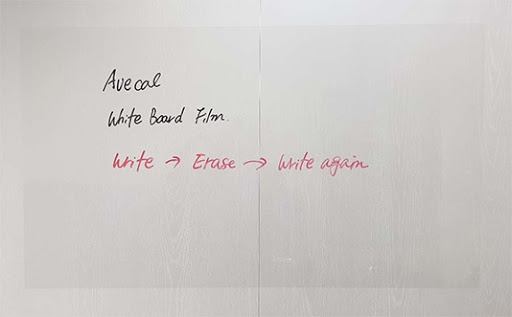 Avecal
White Board Film.
Write → Erase → Write again